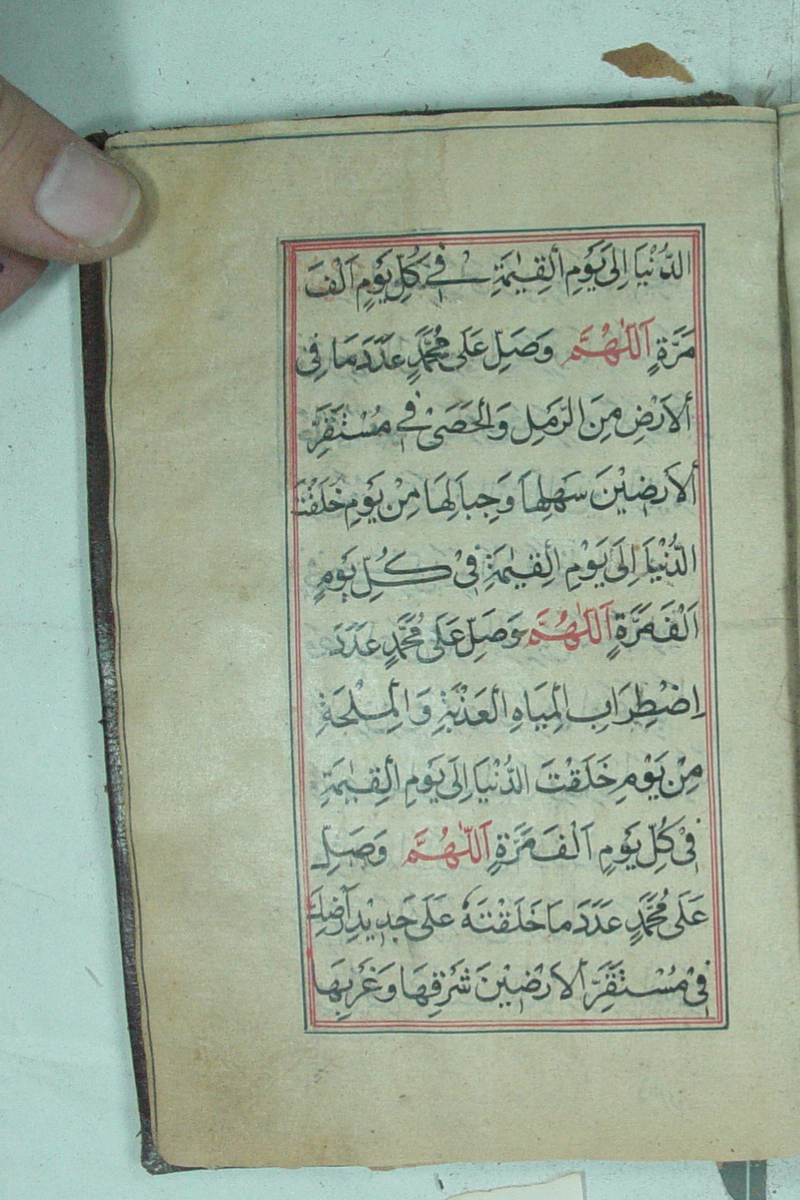 الدُّنْيَا اِلَى يَوْمِ الْقِيٰمَةِ فِي كُلِّ يَوْمٍ اَلْفَ
مَرَّةٍ اَللّٰهُمَّ وَصَلِّ عَلَى مُحَمَّدٍ عَدَدَ مَا فِى
الْاَرْضِ مِنَ الرَّمْلِ وَالْحَصَىْ فِي مُسْتَقَرِّ
الْاَرَضِيْنَ سَهْلِهَا وَجِبَالِهَا مِنْ يَوْمِ خَلَقْتَ
الدُّنْيَا اِلَى يَوْمِ الْقِيٰمَةِ فِىْ كُلِّ يَوْمٍ
اَلْفَ مَرَّةٍ اَللّٰهُمَّ وَصَلِّ عَلَى مُحَمَّدٍ عَدَدَ
اِضْطِرَابِ الْمِيَاهِ الْعَذْبَةِ وَالْمِلْحَةِ
مِنْ يَوْمِ خَلَقْتَ الدُّنْيَا اِلَى يَوْمِ الْقِيٰمَةِ
فِىْ كُلِّ يَوْمٍ اَلْفَ مَرَّةٍ اَللّٰهُمَّ وَصَلِّ
عَلَى مُحَمَّدٍ عَدَدَ مَا خَلَقْتَهُ عَلَى جَدِيْدِ اَرْضِكَ
فِىْ مُسْتَقَرِّ الْاَرَضِيْنَ شَرْقِهَا وَغَرْبِهَا